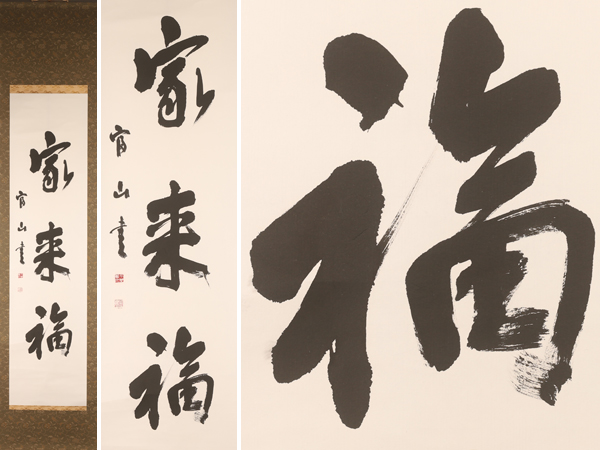 家来福
山書
家来福
山書
福